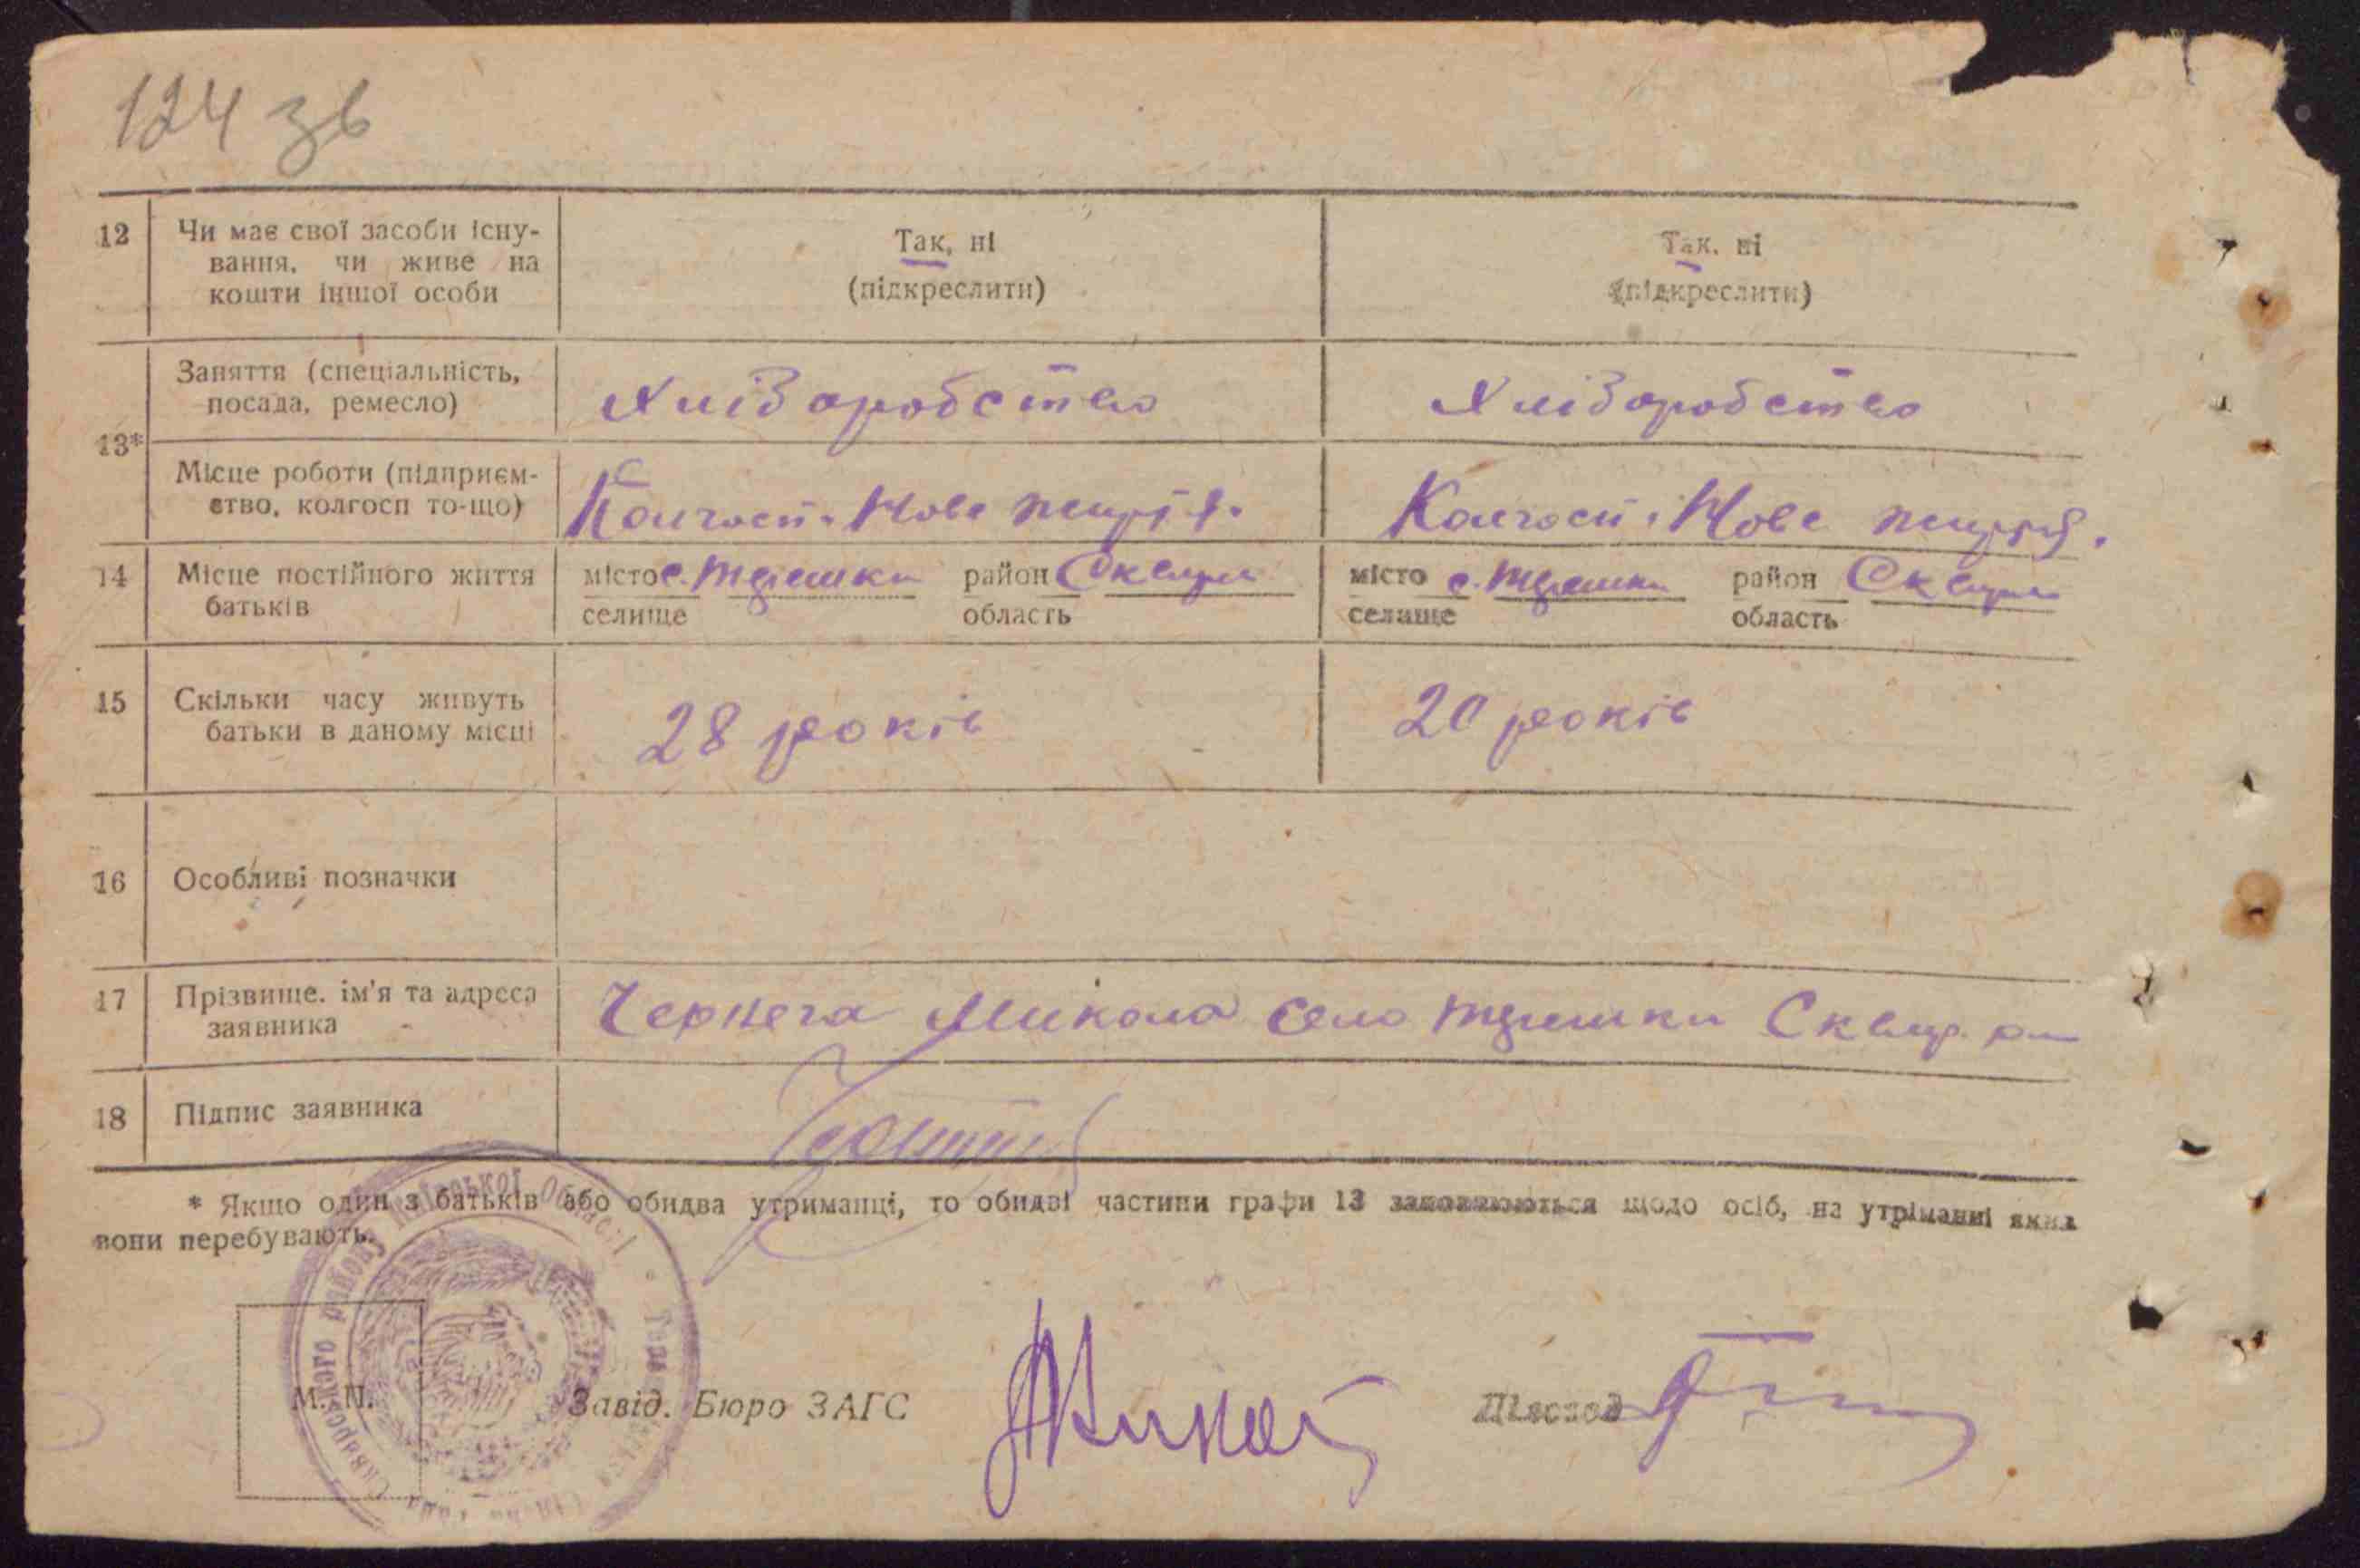 124 зв
12 Чи має свої засоби існу-
вання, чи живе на
кошти іншої особи
Так, ні
(підкреслити)
Так, ні
(підкреслити)
13*
Заняття (спеціальність,
посада, ремесло)
Хліборобство
Хліборобство
Місце роботи (підприєм-
ство, колгосп то-що)
Колгосп. Нове життя.
Колгосп. Нове життя.
14 Місце постійного життя
батьків
місто с. Терешки район Сквира
селище область
місто с. Терешки район Сквира
селище область
15 Скільки часу живуть
батьки в даному місці
28 років
20 років
16 Особливі позначки
17 Прізвище, ім'я та адреса
заявника
Чернега Микола село Терешки Сквир. р-н
18 Підпис заявника
* Якщо один з батьків або обидва утриманці, то обидві частини графи 13 заповнюються щодо осіб, на утриманні яких
вони перебувають.
Сквирського району Київської області
М. П.
Завід. Бюро ЗАГС
Діловод